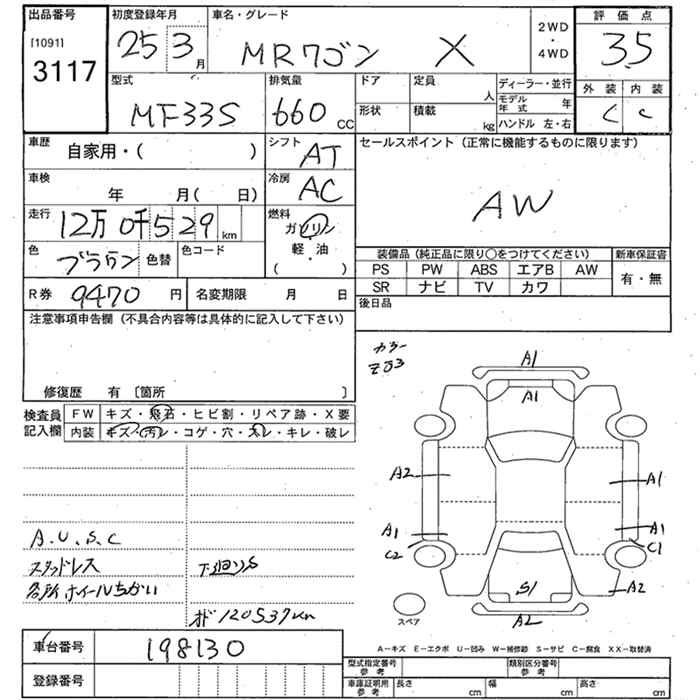 出品番号
[1091]
3117
初度登録年月
25 3 月
車名・グレード
MRワゴン X
2WD
・
4WD
評価点
3.5
外装 内装
C C
型式
MF33S
排気量
660 CC
ドア
形状
定員
人
積載
kg
ディーラー・並行
モデル年式 年
ハンドル 左・右
車歴
自家用・( )
車検
年 月( 日)
走行
12万0千529 km
色
ブラウン
色替
色コード
シフト
AT
冷房
AC
燃料
ガソリン
・
軽・油
・
( )
セールスポイント(正常に機能するものに限ります)
AW
装備品(純正品に限り○をつけてください)
PS PW ABS エアB AW
SR ナビ TV カワ
新車保証書
有・無
R券
9470 円
名変期限 月 日
後日品
注意事項申告欄(不具合内容等は具体的に記入して下さい)
修復歴 有〔箇所 〕
検査員
記入欄
FW キズ・飛石・ヒビ割・リペア跡・X要
内装 キズ・汚レ・コゲ・穴・スレ・キレ・破レ
A.U.S.C
スタッドレス
下廻りS
各所ホイールちがい
オド 120537km
カラー
ZJ3
A1
A1
A2
A1
A1
C2
A1
C1
S1
A2
A2
スペア
A-キズ E-エクボ U-凹み W-補修跡 S-サビ C-腐食 XX-取替済
車台番号
198130
登録番号
型式指定番号
参考
類別区分番号
参考
車庫証明用
参考
長さ cm 幅 cm 高さ cm